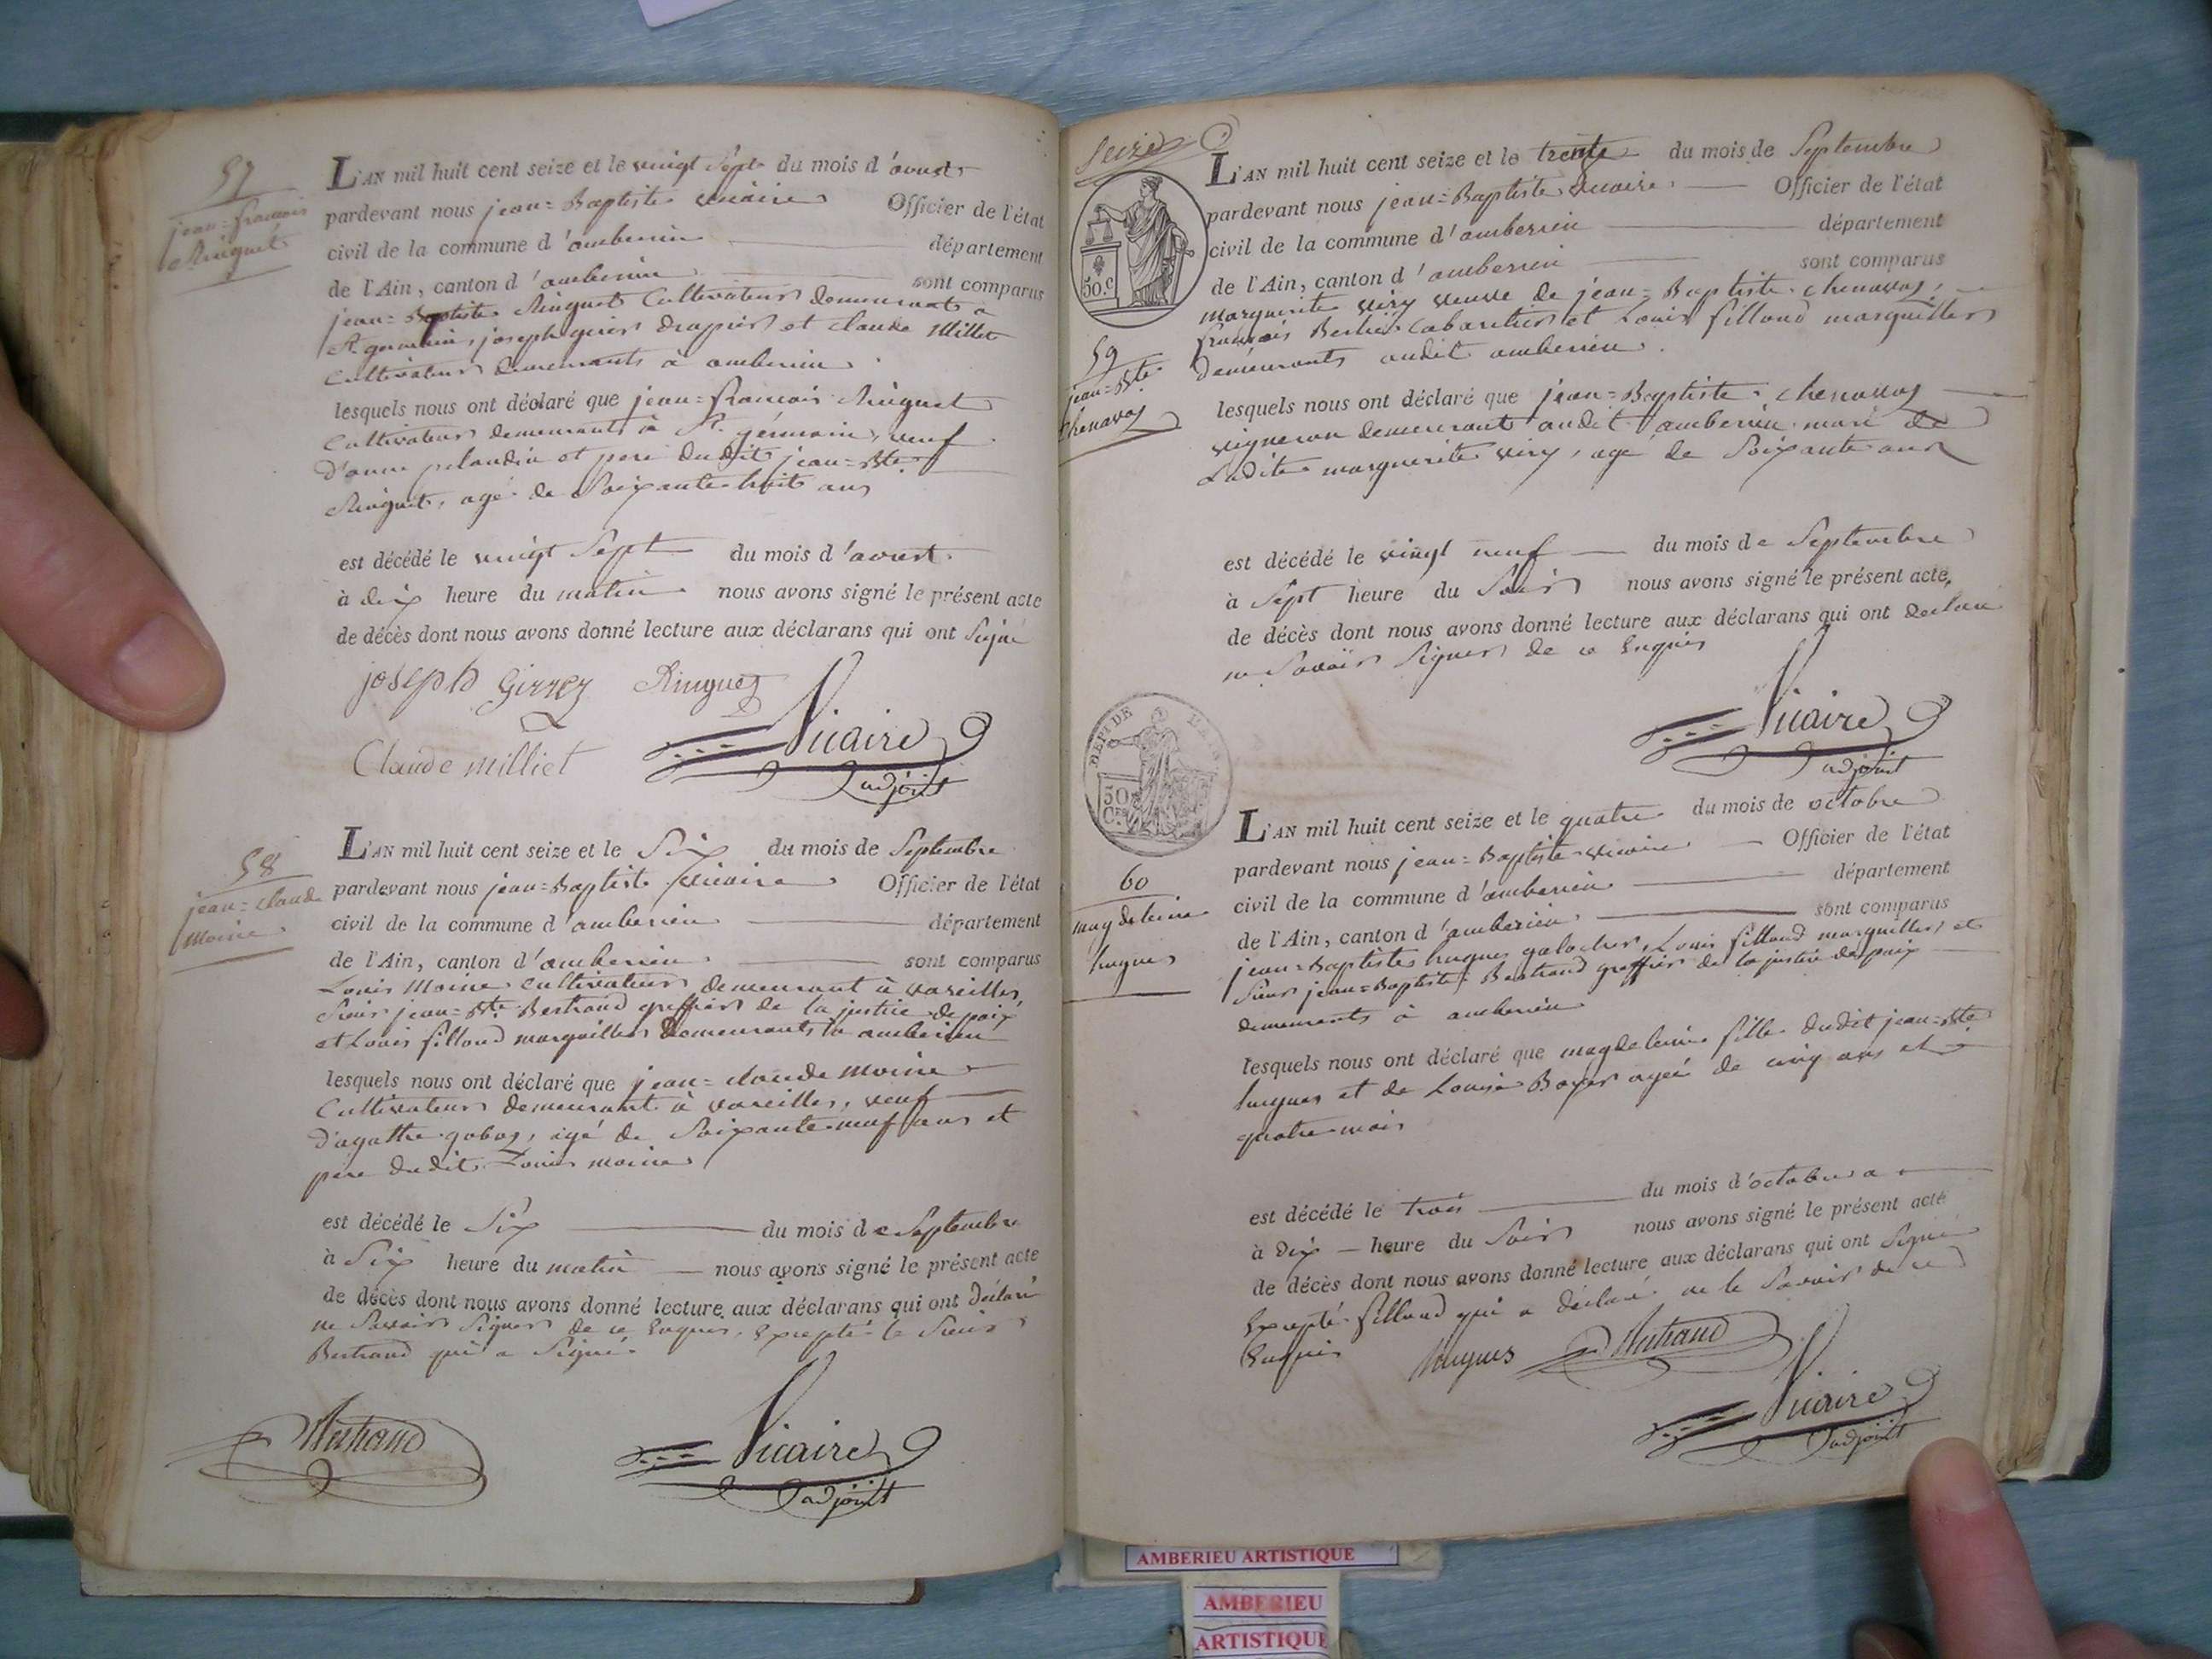 57
jean=francois
Ringuet
L'AN mil huit cent seize et le vingt Sept du mois d'avust
pardevant nous jean=Baptiste vicaire Officier de l'état
civil de la commune d'amberieu département
de l'Ain, canton d'amberieu sont comparus
jean=Baptiste Ringuet Cultivateur demeurant à
St. germain, joseph girier drapier et claude Millet
Cultivateur demeurants à amberieu
lesquels nous ont déclaré que jean=francois Ringuet
Cultivateur demeurants à St. germain, veuf
D'anne pelaudin et pere dudit jean=Bte.
Ringuet, agé de Soixante huit ans
est décédé le vingt Sept du mois d'avust
à dix heure du matin nous avons signé le présent acte
de décès dont nous avons donné lecture aux déclarans qui ont Signé
joseph Girier Ringuet
Claude milliet Vicaire
adjoint
58
jean=claude
Moine
L'AN mil huit cent seize et le Six du mois de Septembre
pardevant nous jean=Baptiste Vicaire Officier de l'état
civil de la commune d'amberieu département
de l'Ain, canton d'amberieu sont comparus
Louis Moine cultivateur demeurant à vareilles,
Sieur jean=Bte. Bertrand greffier de la justice de paix
et Louis fillond marguillier Demeurants à amberieu
lesquels nous ont déclaré que jean=claude Moine
Cultivateur demeurant à vareilles, veuf
D'agathe gobas, agé de Soixante neuf ans et
pere dudit Louis moine
est décédé le Six du mois de Septembre
à Six heure du matin nous avons signé le présent acte
de décès dont nous avons donné lecture aux déclarans qui ont Déclaré
ne Savoir Signer de ce Enquis, Excepté le Sieur
Bertrand qui a Signé.
Bertrand Vicaire
adjoint
Seize
50.c
59
jean=Bte.
Chenavas
L'AN mil huit cent seize et le trente du mois de Septembre
pardevant nous jean=Baptiste vicaire Officier de l'état
civil de la commune d'amberieu département
de l'Ain, canton d'amberieu sont comparus
Marguerite viry veuve de jean=Baptiste chenavas,
francois Berlie Cabaretier et Louis fillond marguillier
Demeurants audit amberieu.
lesquels nous ont déclaré que jean=Baptiste chenavas
vigneron demeurant audit amberieu mari de
Ladite marguerite viry, agé de Soixante ans
est décédé le vingt neuf du mois de Septembre
à Sept heure du Soir nous avons signé le présent acte
de décès dont nous avons donné lecture aux déclarans qui ont declaré
ne Savoir Signer de ce Enquis
Vicaire
adjoint
DEPT DE L'AIN
50
C.
60
magdeleine
hugues
L'AN mil huit cent seize et le quatre du mois de octobre
pardevant nous jean=Baptiste vicaire Officier de l'état
civil de la commune d'amberieu département
de l'Ain, canton d'amberieu sont comparus
jean=Baptiste hugues galocher, Louis fillond marguillier, et
Sieur jean=Baptiste Bertrand greffier de la justice de paix
demeurants à amberieu
lesquels nous ont déclaré que magdeleine fille dudit jean=Bte.
hugues et de Louise Boyer agée de cinq ans et
quatre mois
est décédé le trois du mois d'octobre a
à Dix heure du Soir nous avons signé le présent acte
de décès dont nous avons donné lecture aux déclarans qui ont Signé
Excepté fillond qui a declaré ne le Savoir de ce
Enquis hugues Bertrand
Vicaire
adjoint
AMBERIEU ARTISTIQUE
AMBERIEU
ARTISTIQUE